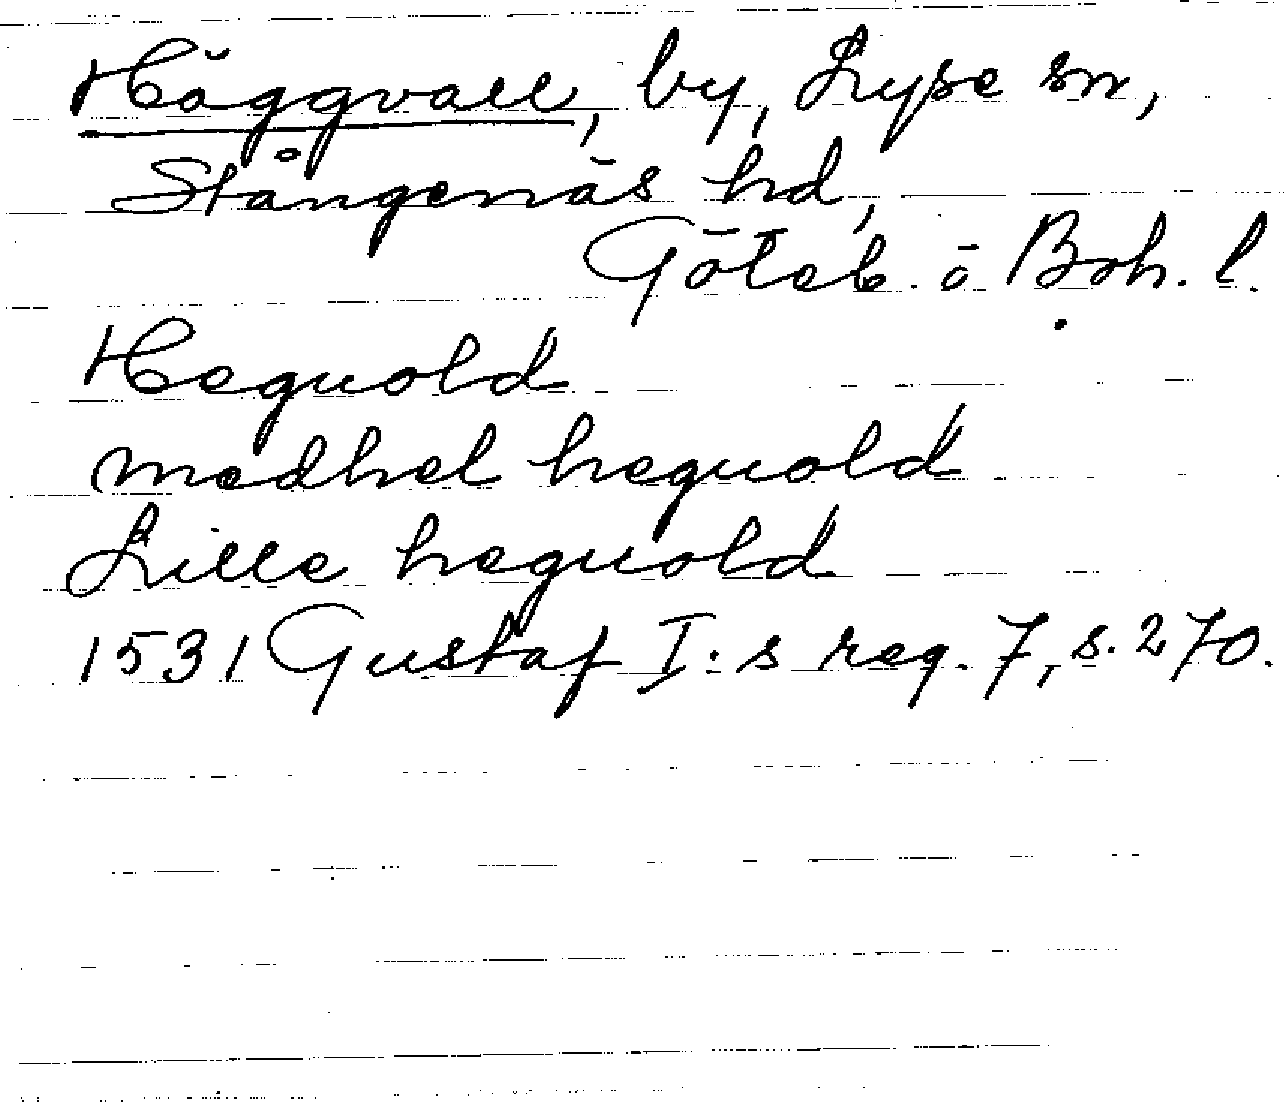 Häggvall, by, Lyse sn,
Stångenäs hd,
Göteb. o Boh. l.
Heguold
medhel heguold
Lille heguold
1531 Gustaf I:s reg. 7, s. 270.